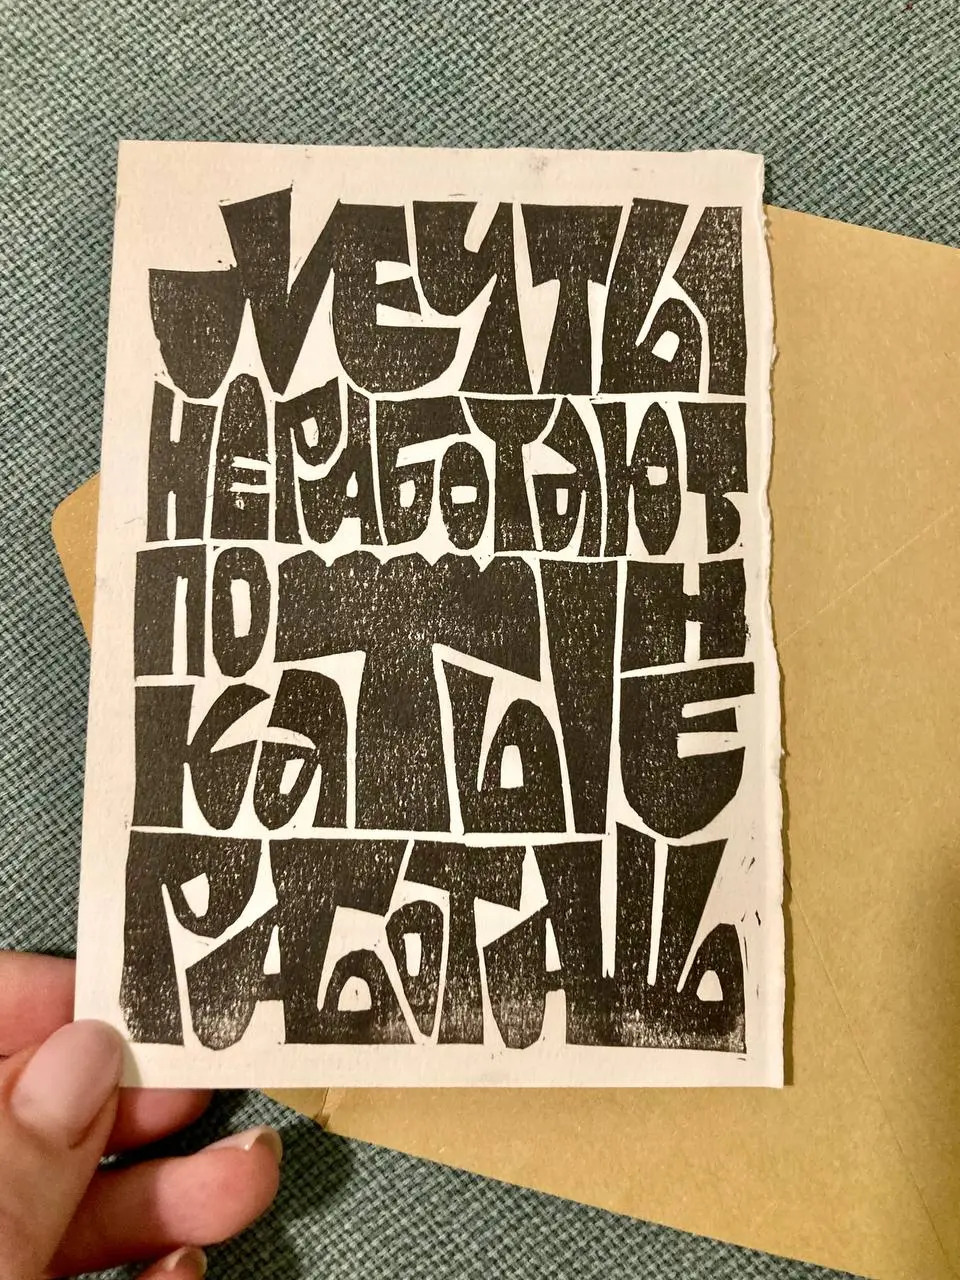 МЕЧТЫ
НЕ РАБОТАЮТ
ПОКА ТЫ НЕ
РАБОТАШЬ